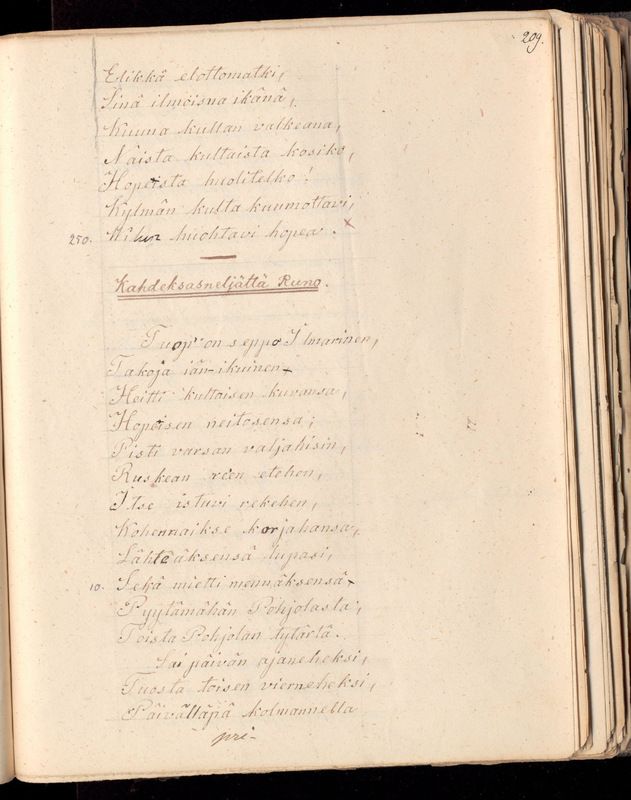 209.
Elikkä elottomatki,
Sinä ilmoisna ikänä,
Kuuna kullan valkeana,
Naista kultaista kosiko,
Hopeista huolitelko!
Kylmän kulta kuumottavi,
250. Vilun huohtavi hopea. x
Kahdeksasneljättä Runo.
Tuop' on seppo Ilmarinen,
Takoja iän-ikuinen
Heitti kultaisen kuvansa,
Hopeisen neitosensa;
Pisti varsan valjahisin,
Ruskean reen etehen,
Itse istuvi rekehen,
Kohennaikse korjahansa,
Lähteäksensä lupasi,
10. Sekä mietti mennäksensä
Pyytämähän Pohjolasta,
Toista Pohjolan tytärtä.
Sai päivän ajaneheksi,
Tuosta toisen vierneheksi,
Päivälläpä kolmannella
pri-